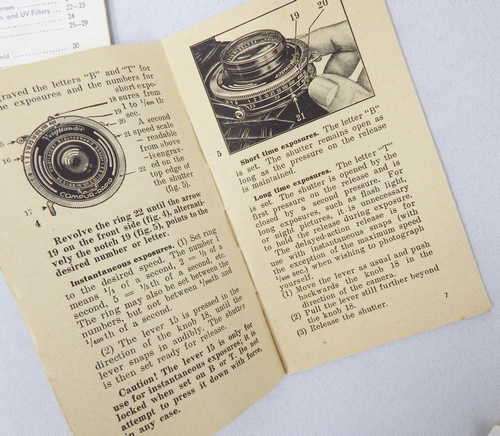 and UV Filters
22—23
24
25—29
30
graved the letters "B" and "T" for
exposures and the numbers for
short expo-
sures from
1 to 1/
sec.
A second
speed scale
readable
from above
is engrav-
ed on the
top edge of
the shutter
(fig. 5).
18
19
20
21
22
16
17
4
Voigtländer
COMPUR-RAPID
Revolve the ring 22 until the arrow
19 on the front side (fig. 4), alternati-
vely the notch 19 (fig. 5), points to the
desired number or letter.
Instantaneous exposures. (1) Set ring
to the desired speed. The number 1
means 1/1 of a second, 2 = 1/2 of a
second, 5 = 1/5th of a second, etc.
The ring may also be set between the
numbers, but not between
of a second.
(2) The lever 15 is pressed in the
direction of the knob 18, until the
lever snaps in audibly. The shutter
is then set ready for release.
Caution! The lever 15 is only for
use for instantaneous exposures; it is
locked when set on B or T. Do not
attempt to press it down with force,
in any case.
19
20
21
5
Short time exposures. The letter "B"
is set. The shutter remains open as
long as the pressure on the release
is maintained.
Long time exposures. The letter "T"
is set. The shutter is opened by the
first pressure on the release and is
closed by a second pressure. For
long exposures, such as flash light,
or night pictures, it is unnecessary
to hold the release during exposure.
The delayed-action release is for
use with instantaneous snaps (with
the exception of the maximum speed
sec.) when wishing to photograph
(1) Move the lever as usual and push
backwards the knob 18 in the
direction of the camera.
(2) Pull the lever still further beyond
the knob 18.
(3) Release the shutter.
7